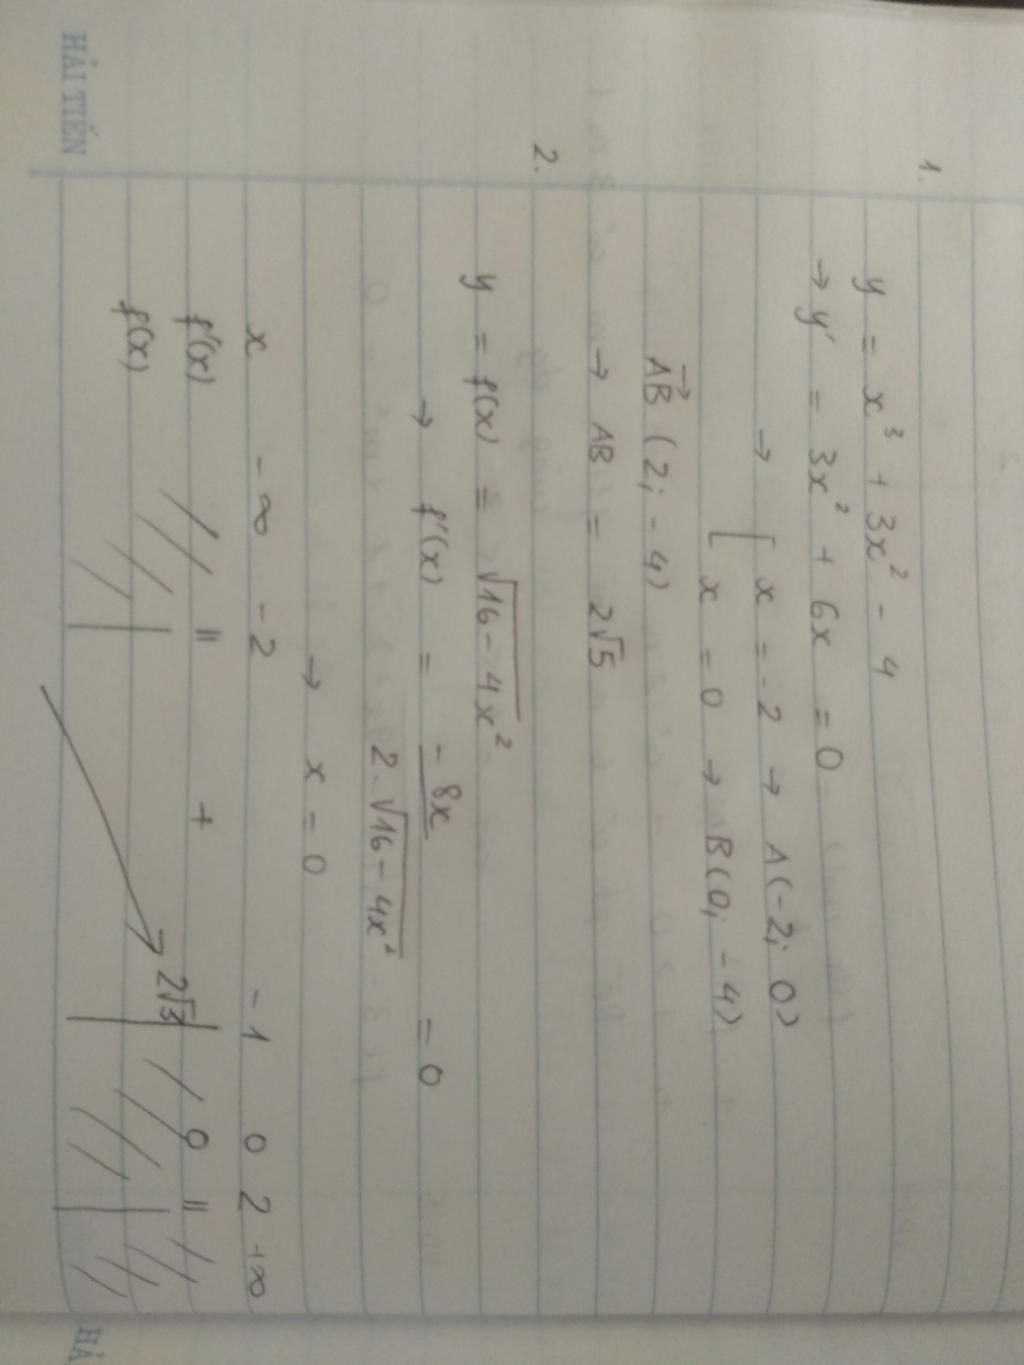 1.
y = x³ + 3x² - 4
→ y' = 3x² + 6x = 0
→ [ x = -2 → A(-2; 0)
x = 0 → B(0; -4)
AB→ (2; -4)
→ AB = 2√5
2.
y = f(x) = √(16 - 4x²)
→ f'(x) = -8x / (2.√(16 - 4x²)) = 0
→ x = 0
x -∞ -2 -1 0 2 +∞
f'(x) || + 0 ||
f(x) 2√3
HẢI TIẾN
HẢ